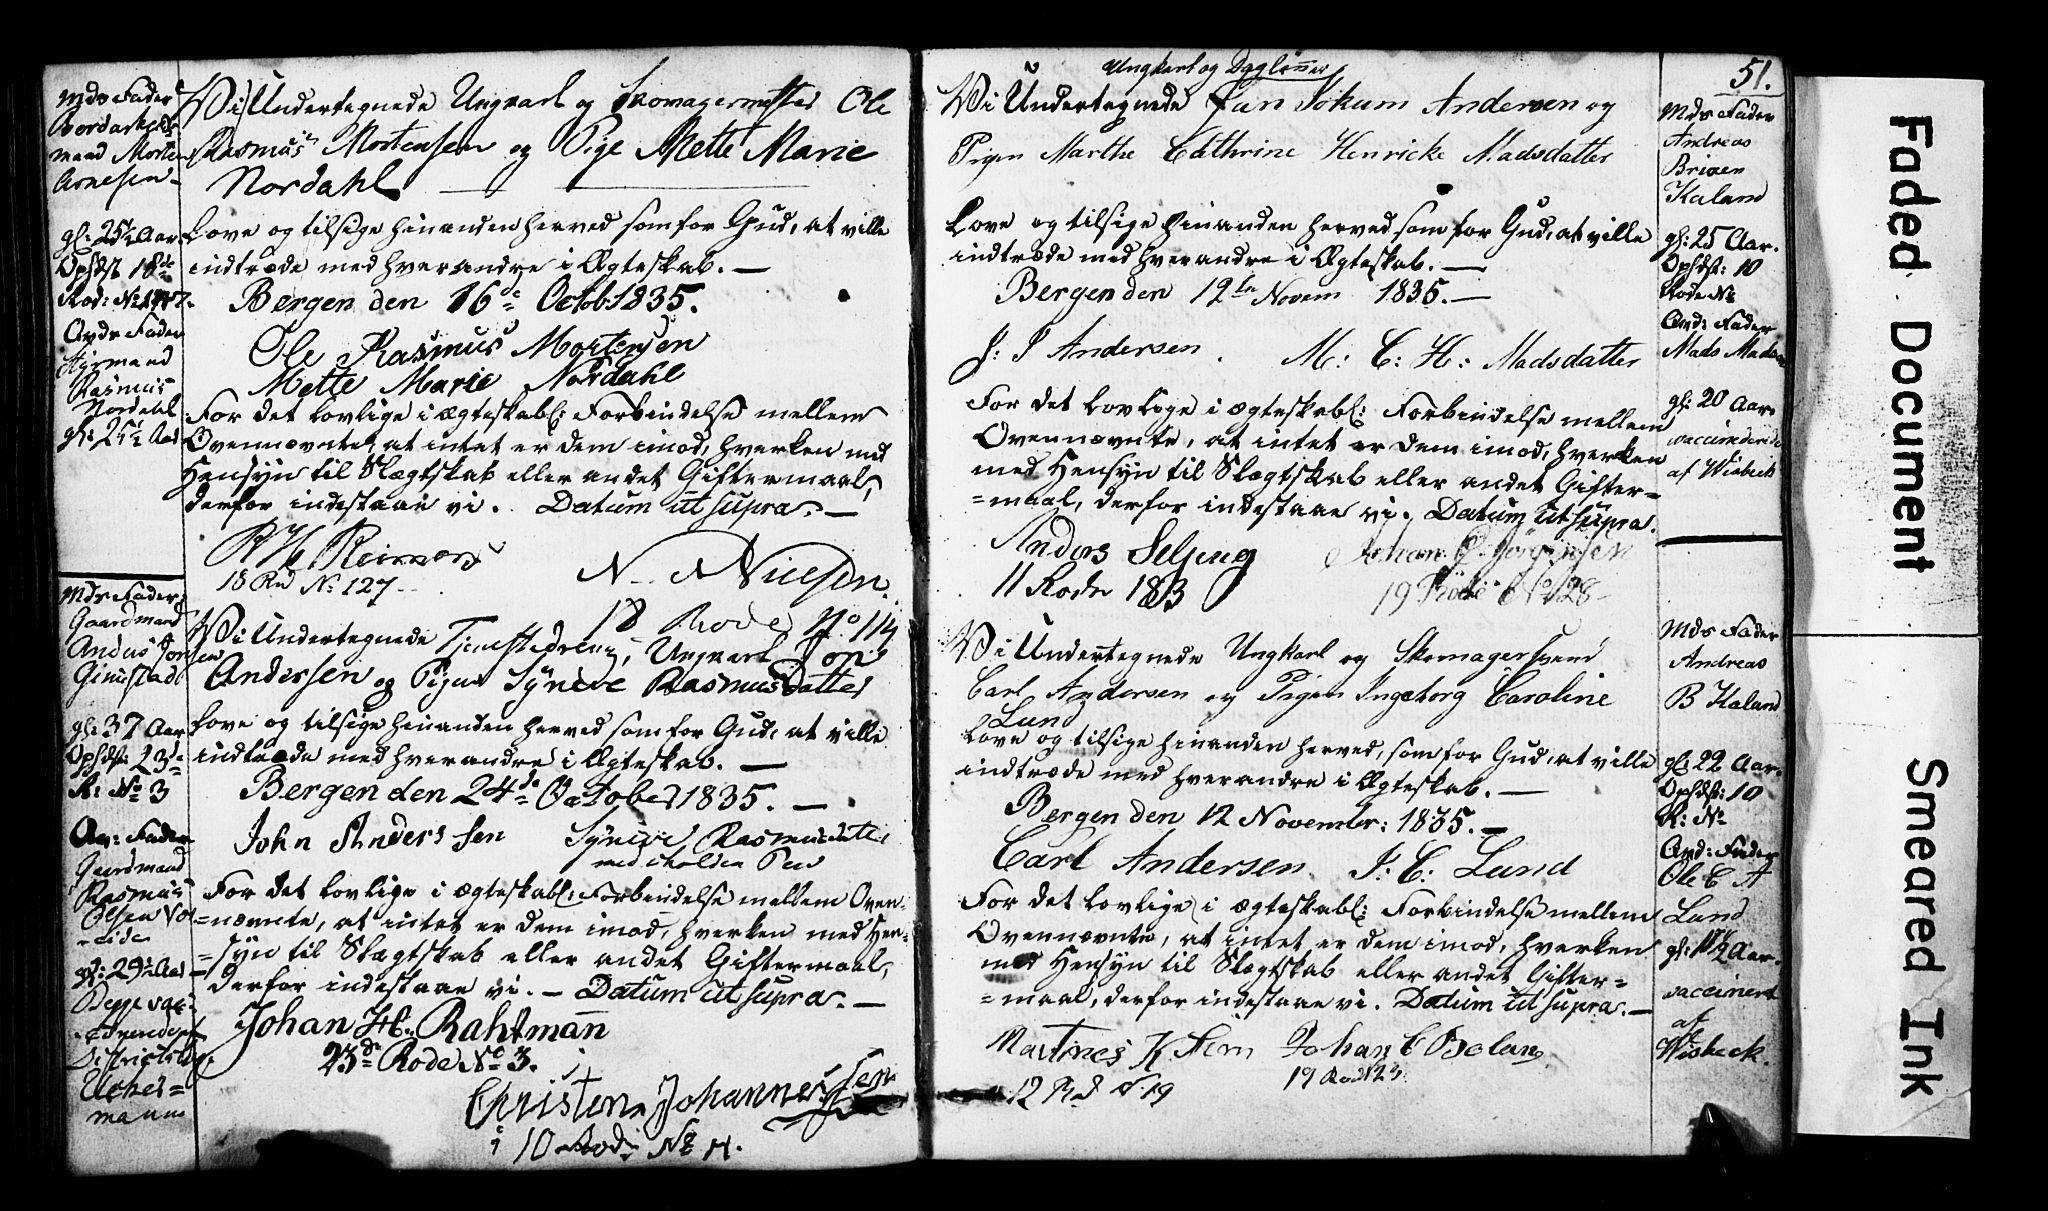 Mds Fader
Mand Morten
Arnesen
gl: 25½ Aar
Opfdst 18de
Rod: No
Avds Fader
Styrmand
Rasmus
Nordahl
gl: 25½ Aar
Vi Undertegnede Ungkarl og Skomagermester Ole
Rasmus Mortensen og Pige Mette Marie
Nordahl
Love og tilsige hinanden herved som for Gud, at ville
indtræde med hverandre i Ægteskab. —
Bergen den 16de Octob 1835.
Ole Rasmus Mortensen
Mette Marie Nordahl
For det lovlige i ægteskabl: Forbindelse mellem
Ovennævnte, at intet er dem imod, hverken med
Hensyn til Slægtskab eller andet Giftermaal,
derfor indestaae vi. Datum ut supra. —
R H Reimers
18 Rd No 127
N. N Nielsen.
18 Rode No 114
Mds Fader:
Gaardmand
Anders Jonsen
Gimistad
gl: 37 Aar
Opfdst: 23de
R: No 3
Av: Fader
Gaardmand
Rasmus
Olsen
gl: 29½ Aar
Begge vac-
Districtslæge
Ucher=
mann
Vi Undertegnede Tjenestedreng, Ungkarl Jon
Andersen og Pigen Syneve Rasmusdatter
Love og tilsige hinanden herved som for Gud, at ville
indtræde med hverandre i Ægteskab. —
Bergen den 24de October 1835. —
John Anderssen Syneve Rasmusdatter
med iholden Pen
For det lovlige i ægteskabl: Forbindelse mellem Oven-
=nævnte, at intet er dem imod, hverken med Hen-
=syn til Slægtskab eller andet Giftermaal,
derfor indestaae vi. — Datum ut supra. —
Johan H. Rahtmann
23de Rode No 3.
Christen Johannessen
i 10 Rode No 11.
51.
Ungkarl og Daglønner
Vi Undertegnede Jan Jokum Andersen og
Pigen Marthe Cathrine Henricke Madsdatter
Love og tilsige hinanden herved som for Gud, at ville
indtræde med hverandre i Ægteskab. —
Bergen den 12te Novem 1835. —
J: J Andersen. M: C: H: Madsdatter
For det lovlige i ægteskabl: Forbindelse mellem
Ovennævnte, at intet er dem imod, hverken
med Hensyn til Slægtskab eller andet Gifter=
=maal, derfor indestaae vi. Datum ut supra.
Anders Seljeng
11 Rode 183
Johan C. Jørgensen
19 Rode No 28
Mds Fader
Andreas
Brixen
Kaland
gl: 25 Aar.
Opfdst: 10
Rode No
Avd: Fader
Mads Madsen
gl: 20 Aar.
vaccinerede
af Wisbech
Vi Undertegnede Ungkarl og Skomagersvend
Carl Andersen og Pigen Ingeborg Caroline
Lund
Love og tilsige hinanden herved, som for Gud, at ville
indtræde med hverandre i Ægteskab. —
Bergen den 12 November: 1835. —
Carl Andersen. I: C: Lund
For det lovlige i ægteskabl: Forbindelse mellem
Ovennævnte, at intet er dem imod, hverken
med Hensyn til Slægtskab eller andet Gifter=
=maal, derfor indestaae vi. Datum ut supra. —
Martines K Fem
12 Rd N. 19
Johan C
19 Rod
Mds Fader
Andreas
B Kaland
gl: 22 Aar.
Opfdst: 10
R: No
Avd: Fader
Ole C A
Lund
vaccinert
af
Wisbeck.
Faded Document
Smeared Ink